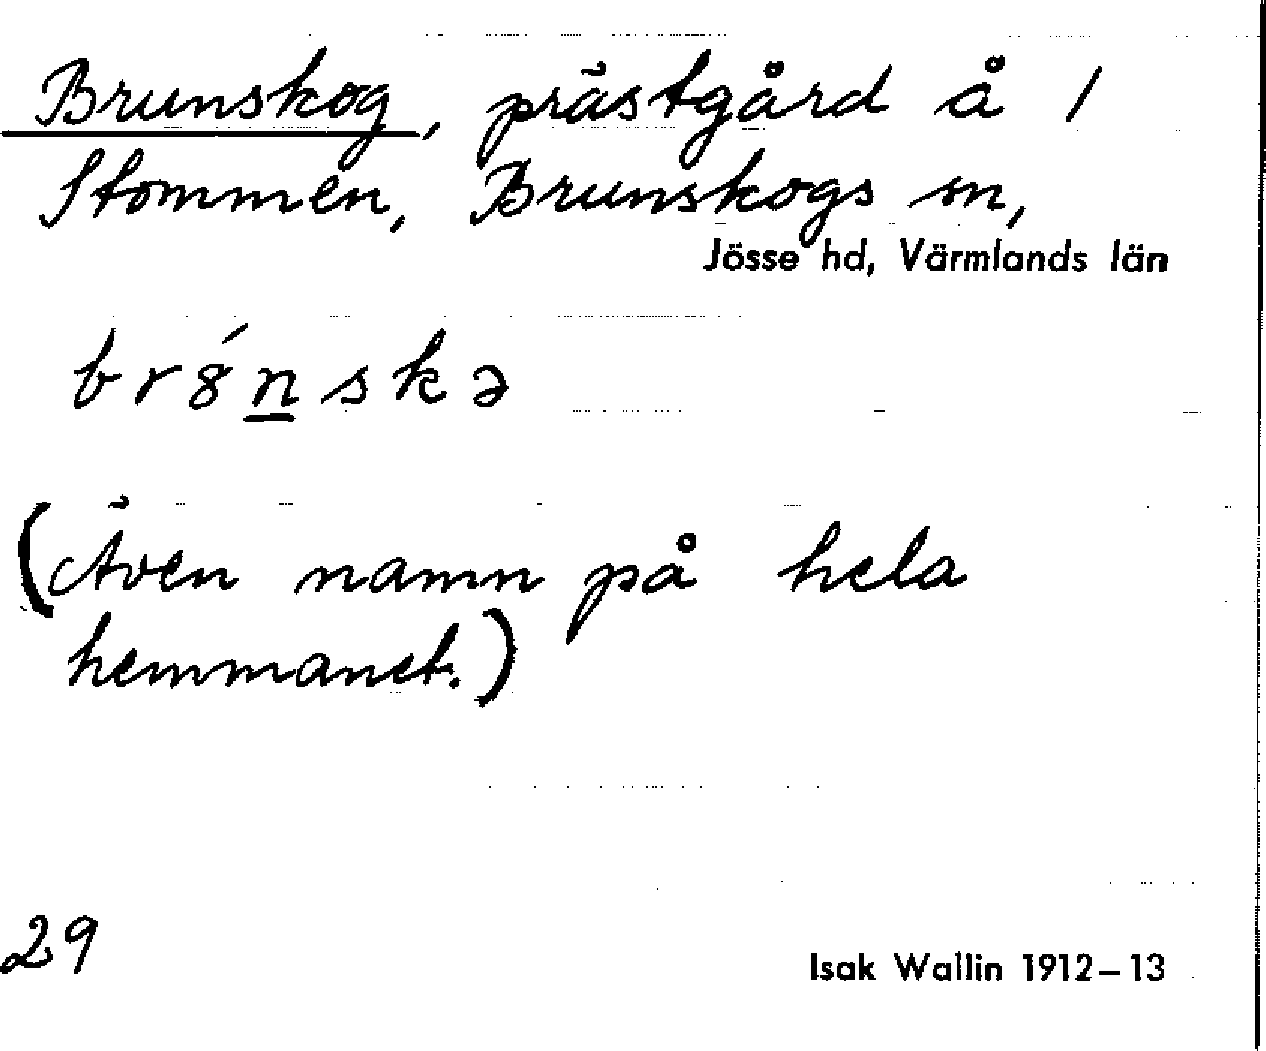 Brunskog, prästgård å 1
Stommen, Brunskogs sn,
Jösse hd, Värmlands län
br8́n̲skə
(Även namn på hela
hemmanet.)
29
Isak Wallin 1912–13